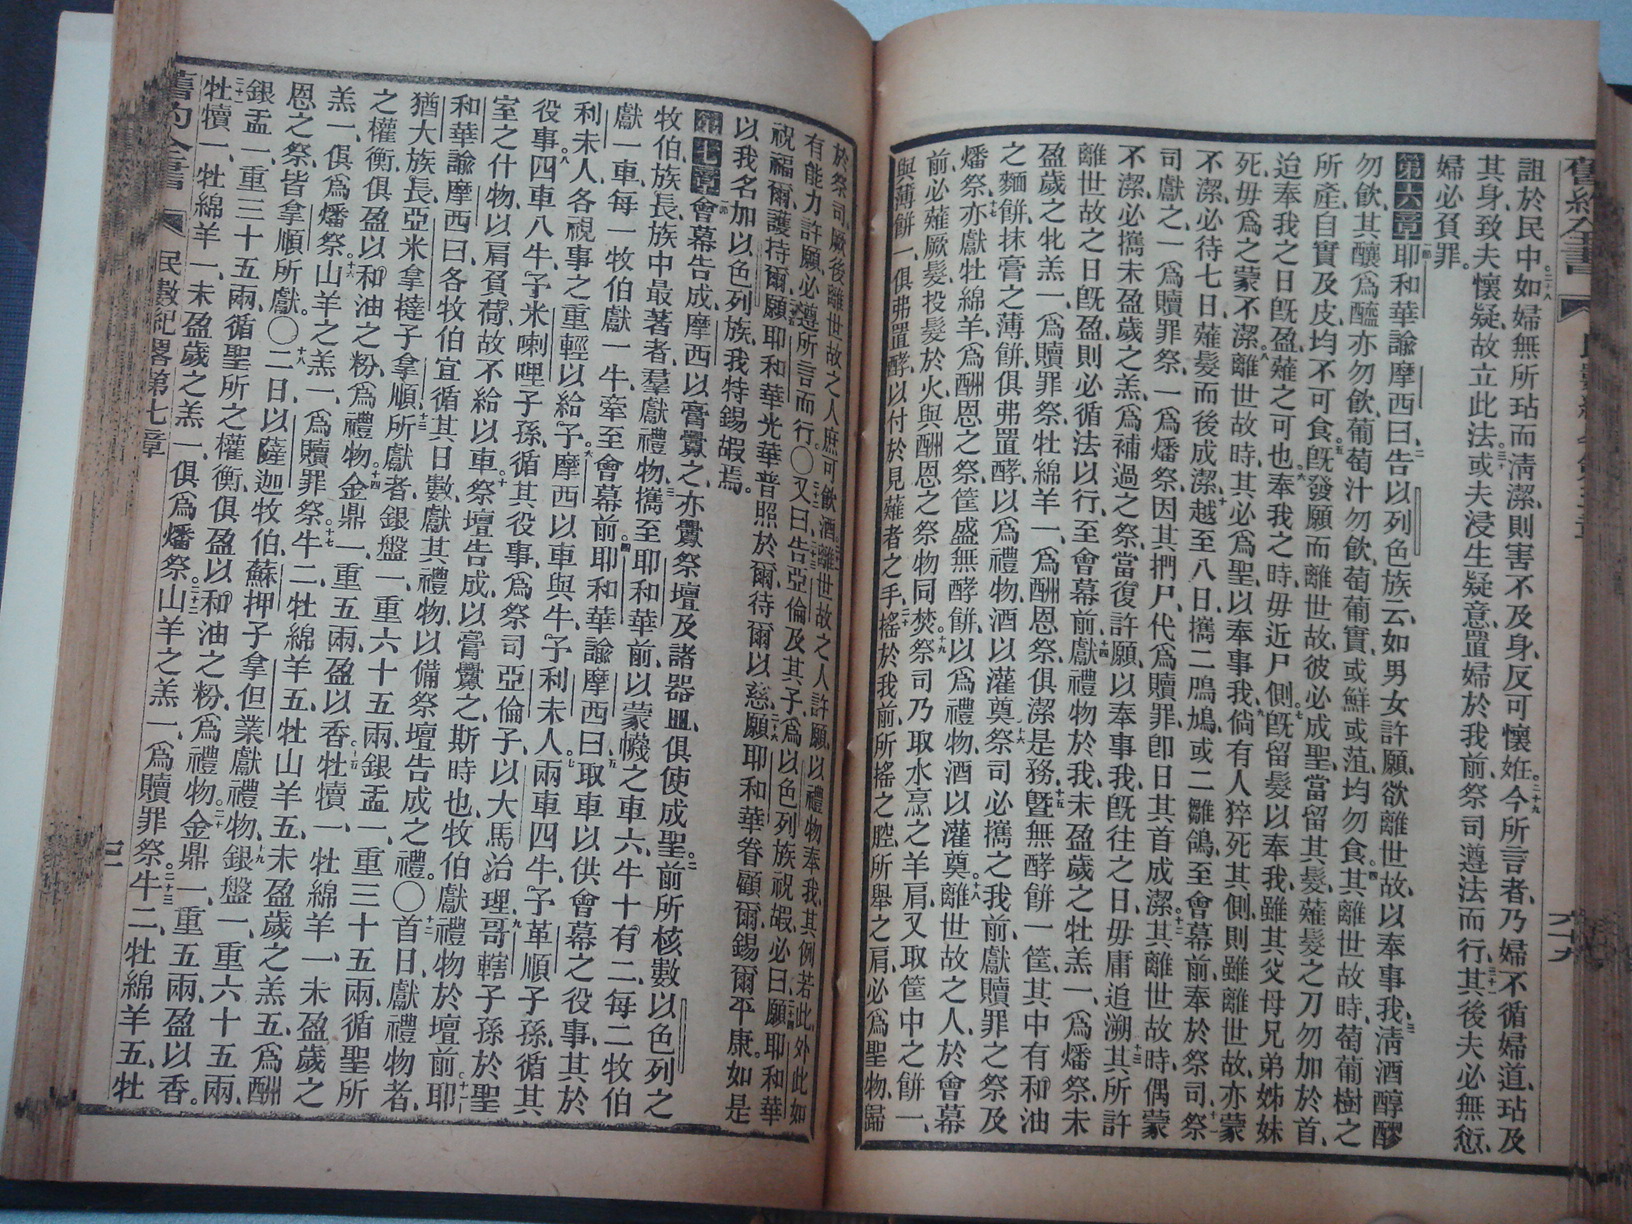 詛於民中、二十八如婦無所玷而清潔、則害不及身、反可懷妊。二十九今所言者、乃婦不循婦道、玷及
其身、致夫懷疑、故立此法、三十或夫浸生疑意、置婦於我前、祭司遵法而行、三十一其後夫必無愆、
婦必負罪。
第六章一節耶和華諭摩西曰、二告以色列色族云、如男女許願、欲離世故、以奉事我、三清酒醇醪
勿飲、其釀爲醯亦勿飲、葡萄汁勿飲、葡萄實、或鮮或菹、均勿食。四其離世故時、葡萄樹之
所產、自實及皮、均不可食。五旣發願而離世故、彼必成聖、當留其髮、薙髮之刀、勿加於首、
迨奉我之日旣盈、薙之可也。六奉我之時、毋近尸側。七旣留髮以奉我、雖其父母兄弟姊妹
死、毋爲之蒙不潔。八離世故時、其必爲聖、以奉事我。九倘有人猝死其側、則雖離世故、亦蒙
不潔、必待七日薙髮、而後成潔。十越至八日、攜二鳲鳩、或二雛鴿、至會幕前、奉於祭司。十一祭
司獻之、一爲贖罪祭、一爲燔祭、因其捫尸、代爲贖罪、卽日其首成潔。十二其離世故時、偶蒙
不潔、必攜未盈歲之羔、爲補過之祭、當復許願、以奉事我、旣往之日、毋庸追溯。十三其所許
離世故之日旣盈、則必循法以行、至會幕前、十四獻禮物於我、未盈歲之牡羔一、爲燔祭、未
盈歲之牝羔一、爲贖罪祭、牡綿羊一、爲酬恩祭、俱潔是務、十五曁無酵餅一筐、其中有和油
之麵餅、抹膏之薄餅、俱弗置酵、以爲禮物、酒以灌奠。十六祭司必攜之我前、獻贖罪之祭、及
燔祭、十七亦獻牡綿羊、爲酬恩之祭、筐盛無酵餅、以爲禮物、酒以灌奠。十八離世故之人、於會幕
前、必薙厥髮、投髮於火、與酬恩之祭物同焚。十九祭司乃取水烹之羊肩、又取筐中之餅一、
與薄餅一、俱弗置酵、以付於見薙者之手、二十搖於我前、所搖之腔、所舉之肩、必爲聖物、歸
於祭司、厥後離世故之人、庶可飲酒。二十一離世故之人、許願以禮物奉我、其例若此、外此如
有能力、許願必遵所言而行。○二十二又曰、二十三告亞倫及其子、爲以色列族祝嘏、必曰、二十四願耶和華
祝福爾、護持爾、二十五願耶和華光華普照於爾、待爾以慈、二十六願耶和華眷顧爾、錫爾平康。二十七如是
以我名加以色列族、我特錫嘏焉。
第七章一節會幕告成、摩西以膏釁之、亦釁祭壇及諸器皿、俱使成聖。二前所核數以色列之
牧伯、族長、族中最著者、羣獻禮物、三攜至耶和華前、以蒙幭之車六、牛十有二、每二牧伯
獻一車、每一牧伯獻一牛、牽至會幕前。四耶和華諭摩西曰、五取車以供會幕之役事、其於
利未人、各視事之重輕以給予。六摩西以車與牛、予利未人、七兩車四牛、予革順子孫、循其
役事、八四車八牛、予米喇哩子孫、循其役事、爲祭司亞倫子以大馬治理、九哥轄子孫於聖
室之什物、以肩負荷、故不給以車。十祭壇告成、以膏釁之、斯時也、牧伯獻禮物於壇前、十一耶
和華諭摩西曰、各牧伯宜循其日數、獻其禮物、以備祭壇告成之禮。○十二首日獻禮物者、
猶大族長、亞米拿撻子拿順、十三所獻者、銀盤一、重六十五兩、銀盂一、重三十五兩、循聖所
之權衡、俱盈以和油之粉、爲禮物、十四金鼎一、重五兩、盈以香、十五牡犢一、牡綿羊一、未盈歲之
羔一、俱爲燔祭、十六山羊之羔一、爲贖罪祭、十七牛二、牡綿羊五、牡山羊五、未盈歲之羔五、爲酬
恩之祭、皆拿順所獻。○十八二日、以薩迦牧伯、蘇押子拿但業獻禮物、十九銀盤一、重六十五兩、
銀盂一、重三十五兩、循聖所之權衡、俱盈以和油之粉、爲禮物、二十金鼎一、重五兩、盈以香、
二十一牡犢一、牡綿羊一、未盈歲之羔一、俱爲燔祭、二十二山羊之羔一、爲贖罪祭、二十三牛二、牡綿羊五、牡
舊約全書 民數紀畧第七章